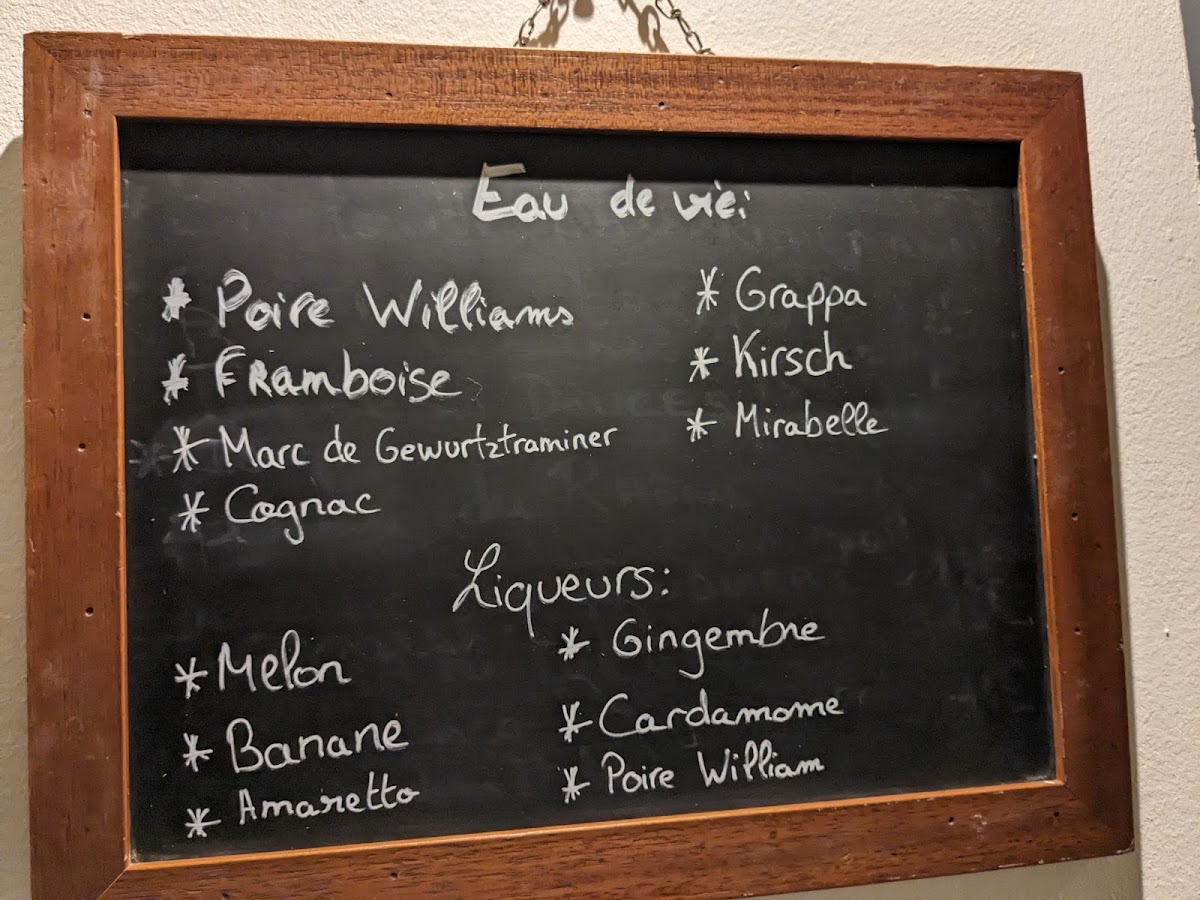 Eau de vie:
* Poire Williams
* Framboise
* Marc de Gewurtztraminer
* Cognac
* Grappa
* Kirsch
* Mirabelle
Liqueurs:
* Melon
* Banane
* Amaretto
* Gingembre
* Cardamome
* Poire William